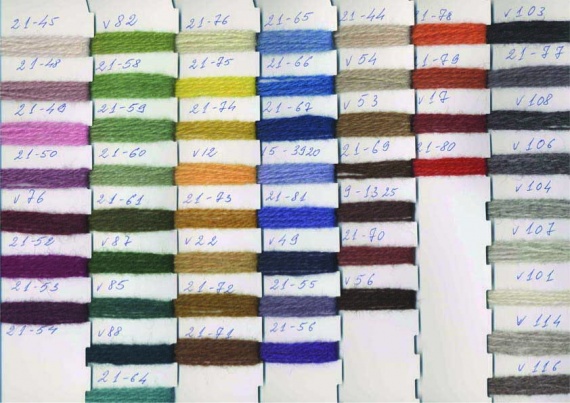 21-45
21-48
21-49
21-50
v76
21-52
21-53
21-54
v82
21-58
21-59
21-60
21-61
v87
v85
v88
21-64
21-76
21-75
21-74
v12
21-73
v22
21-72
21-71
21-65
21-66
21-67
15-3920
21-81
v49
21-55
21-56
21-44
v54
v53
21-69
9-1325
21-70
v56
21-78
21-79
v17
21-80
v103
21-77
v108
v106
v104
v107
v101
v114
v116